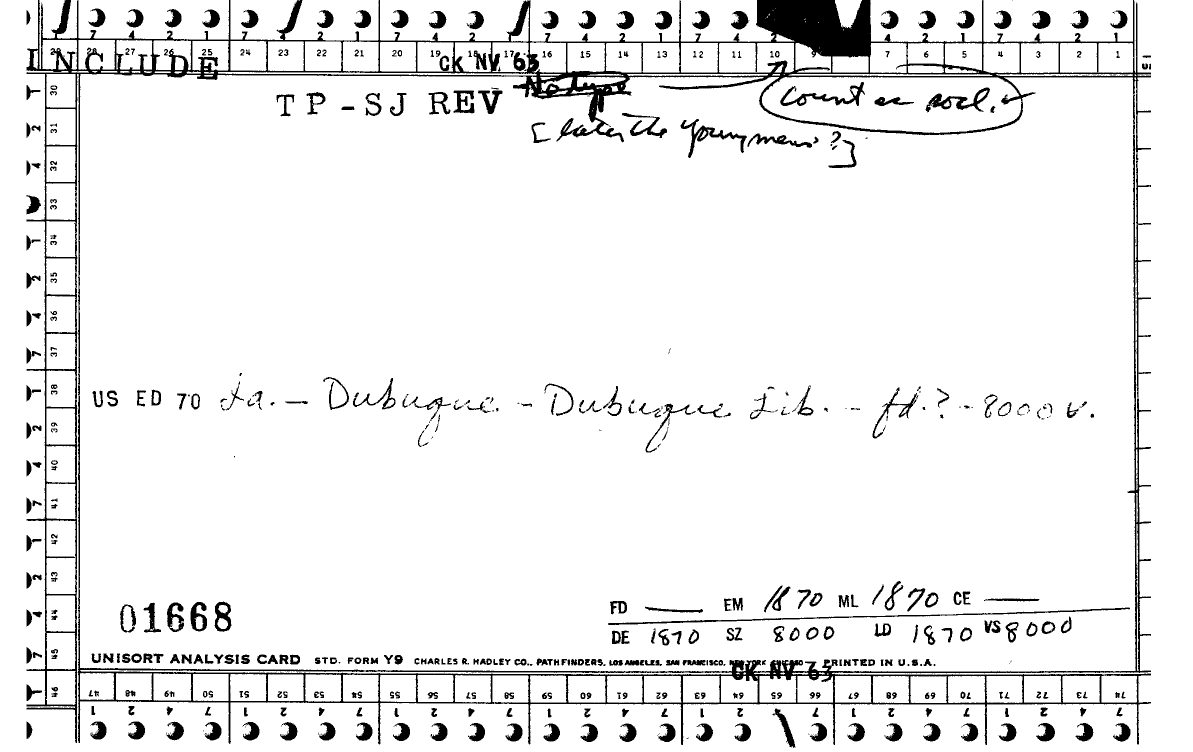 7 4 2 1 7 4 2 1 7 4 2 1 7 4 2 1 7 4 2 1 7 4 2 1
29 28 27 26 25 24 23 22 21 20 19 18 17 16 15 14 13 12 11 10 9 7 6 5 4 3 2 1
INCLUDE
CK NV '63
No type
TP-SJ REV
count as socl.
[later the Youngmens?]
30
31
32
33
34
35
36
37
38
39
40
41
42
43
44
45
46
US ED 70 Ia. — Dubuque - Dubuque Lib. - fd.? - 8000 v.
01668
FD — EM 1870 ML 1870 CE —
DE 1870 SZ 8000 LD 1870 VS 8000
UNISORT ANALYSIS CARD STD. FORM Y9 CHARLES R. HADLEY CO., PATHFINDERS, LOS ANGELES, SAN FRANCISCO, NEW YORK, CHICAGO PRINTED IN U.S.A.
CK NV 63
47 48 49 50 51 52 53 54 55 56 57 58 59 60 61 62 63 64 65 66 67 68 69 70 71 72 73 74
1 2 4 7 1 2 4 7 1 2 4 7 1 2 4 7 1 2 4 7 1 2 4 7 1 2 4 7